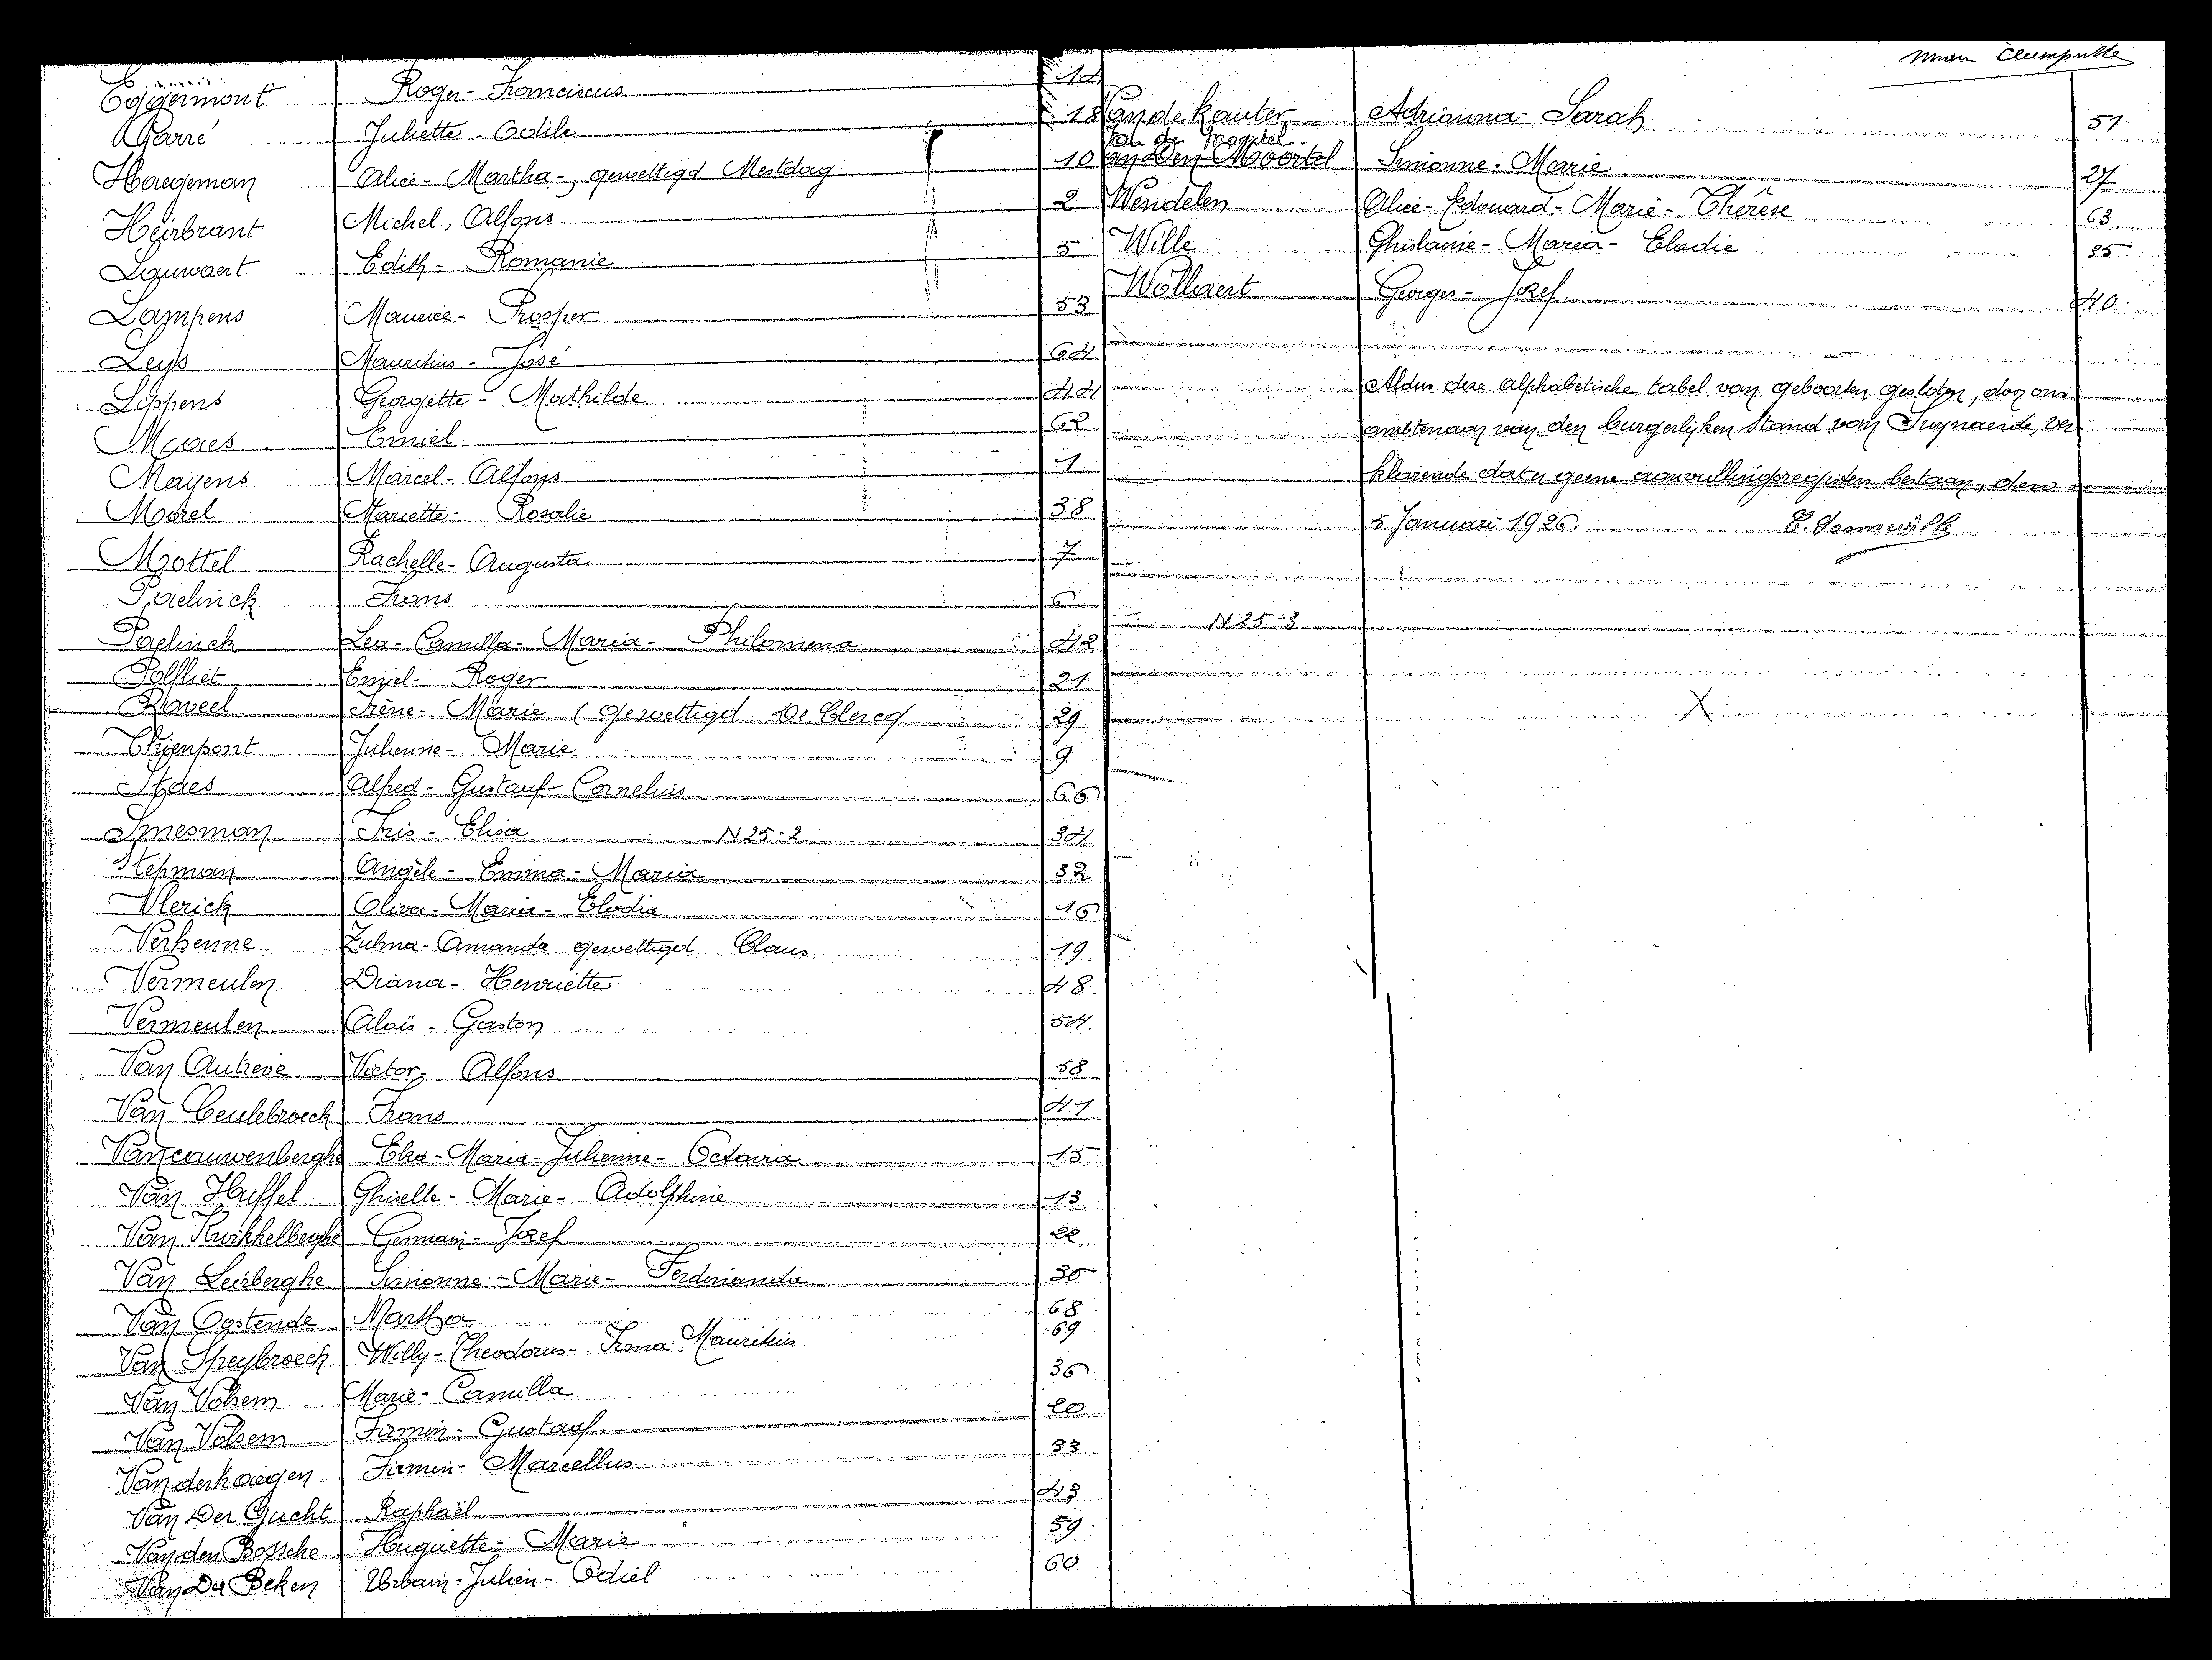 Eggermont Roger - Franciscus 14
Garré Juliette - Odile 18
Haegeman Alice - Martha -, gewettigd Mestdag 10
Heirbrant Michel, Alfons 2
Louwaert Edith - Romanie 5
Lampens Maurice - Prosper 53
Leys Mauritius - José 64
Lippens Georgette - Mathilde 44
Maes Emiel 62
Mayens Marcel - Alfons 1
Morel Mariette - Rosalie 38
Mottel Rachelle - Augusta 7
Paelinck Frans 6
Paelinck Lea - Camilla - Maria - Philomena 42
Polfliet Emiel - Roger 21
Raveel Irène - Marie ( gewettigd De Clercq 29
Thienpont Julienne - Marie 9
Staes Alfred - Gustaaf - Cornelius 66
Smesman Iris - Elisa N25-2 34
Stepman Angèle - Emma - Maria 32
Vlerick Oliva - Maria - Elodia 16
Verhenne Zulma - Amanda gewettigd Claus 19.
Vermeulen Diana - Henriette 48
Vermeulen Aloïs - Gaston 54.
Van Autreve Victor - Alfons 58
Van Ceulebroeck Frans 41
Vancauwenberghe Elza - Maria - Julienne - Octavia 15
Van Huffel Ghiselle - Marie - Adolphine 13
Van Kwikkelberghe Germain - Jozef 22.
Van Leirberghe Simonne - Marie - Ferdinanda 30
Van Oostende Martha 68
Van Speybroeck Willy - Theodorus - Irma Mauritius 69
Van Volsem Marie - Camilla 36
Van Volsem Firmin - Gustaaf 20
Vanderhaegen Firmin - Marcellus 33
Van Der Gucht Raphaël 43
Van den Bossche Huguette - Marie 59
Van Der Beken Urbain - Julien - Odiel 60
Van de kauter Adrianna - Sarah 51
Van de Moortel
Van Den Moortel Simonne - Marie 27
Wendelen Alice - Edouard - Marie - Thérèse 63.
Wille Ghislaine - Maria - Elodie 35
Wollaert Georges - Jozef 40.
Aldus deze alphabetische tabel van geboorten gesloten, door ons
ambtenaar van den burgerlijken stand van Swynaerde, ver
klarende dat er geene aanvullingsregisters bestaan, den
5 Januari 1926.
N25-3
X